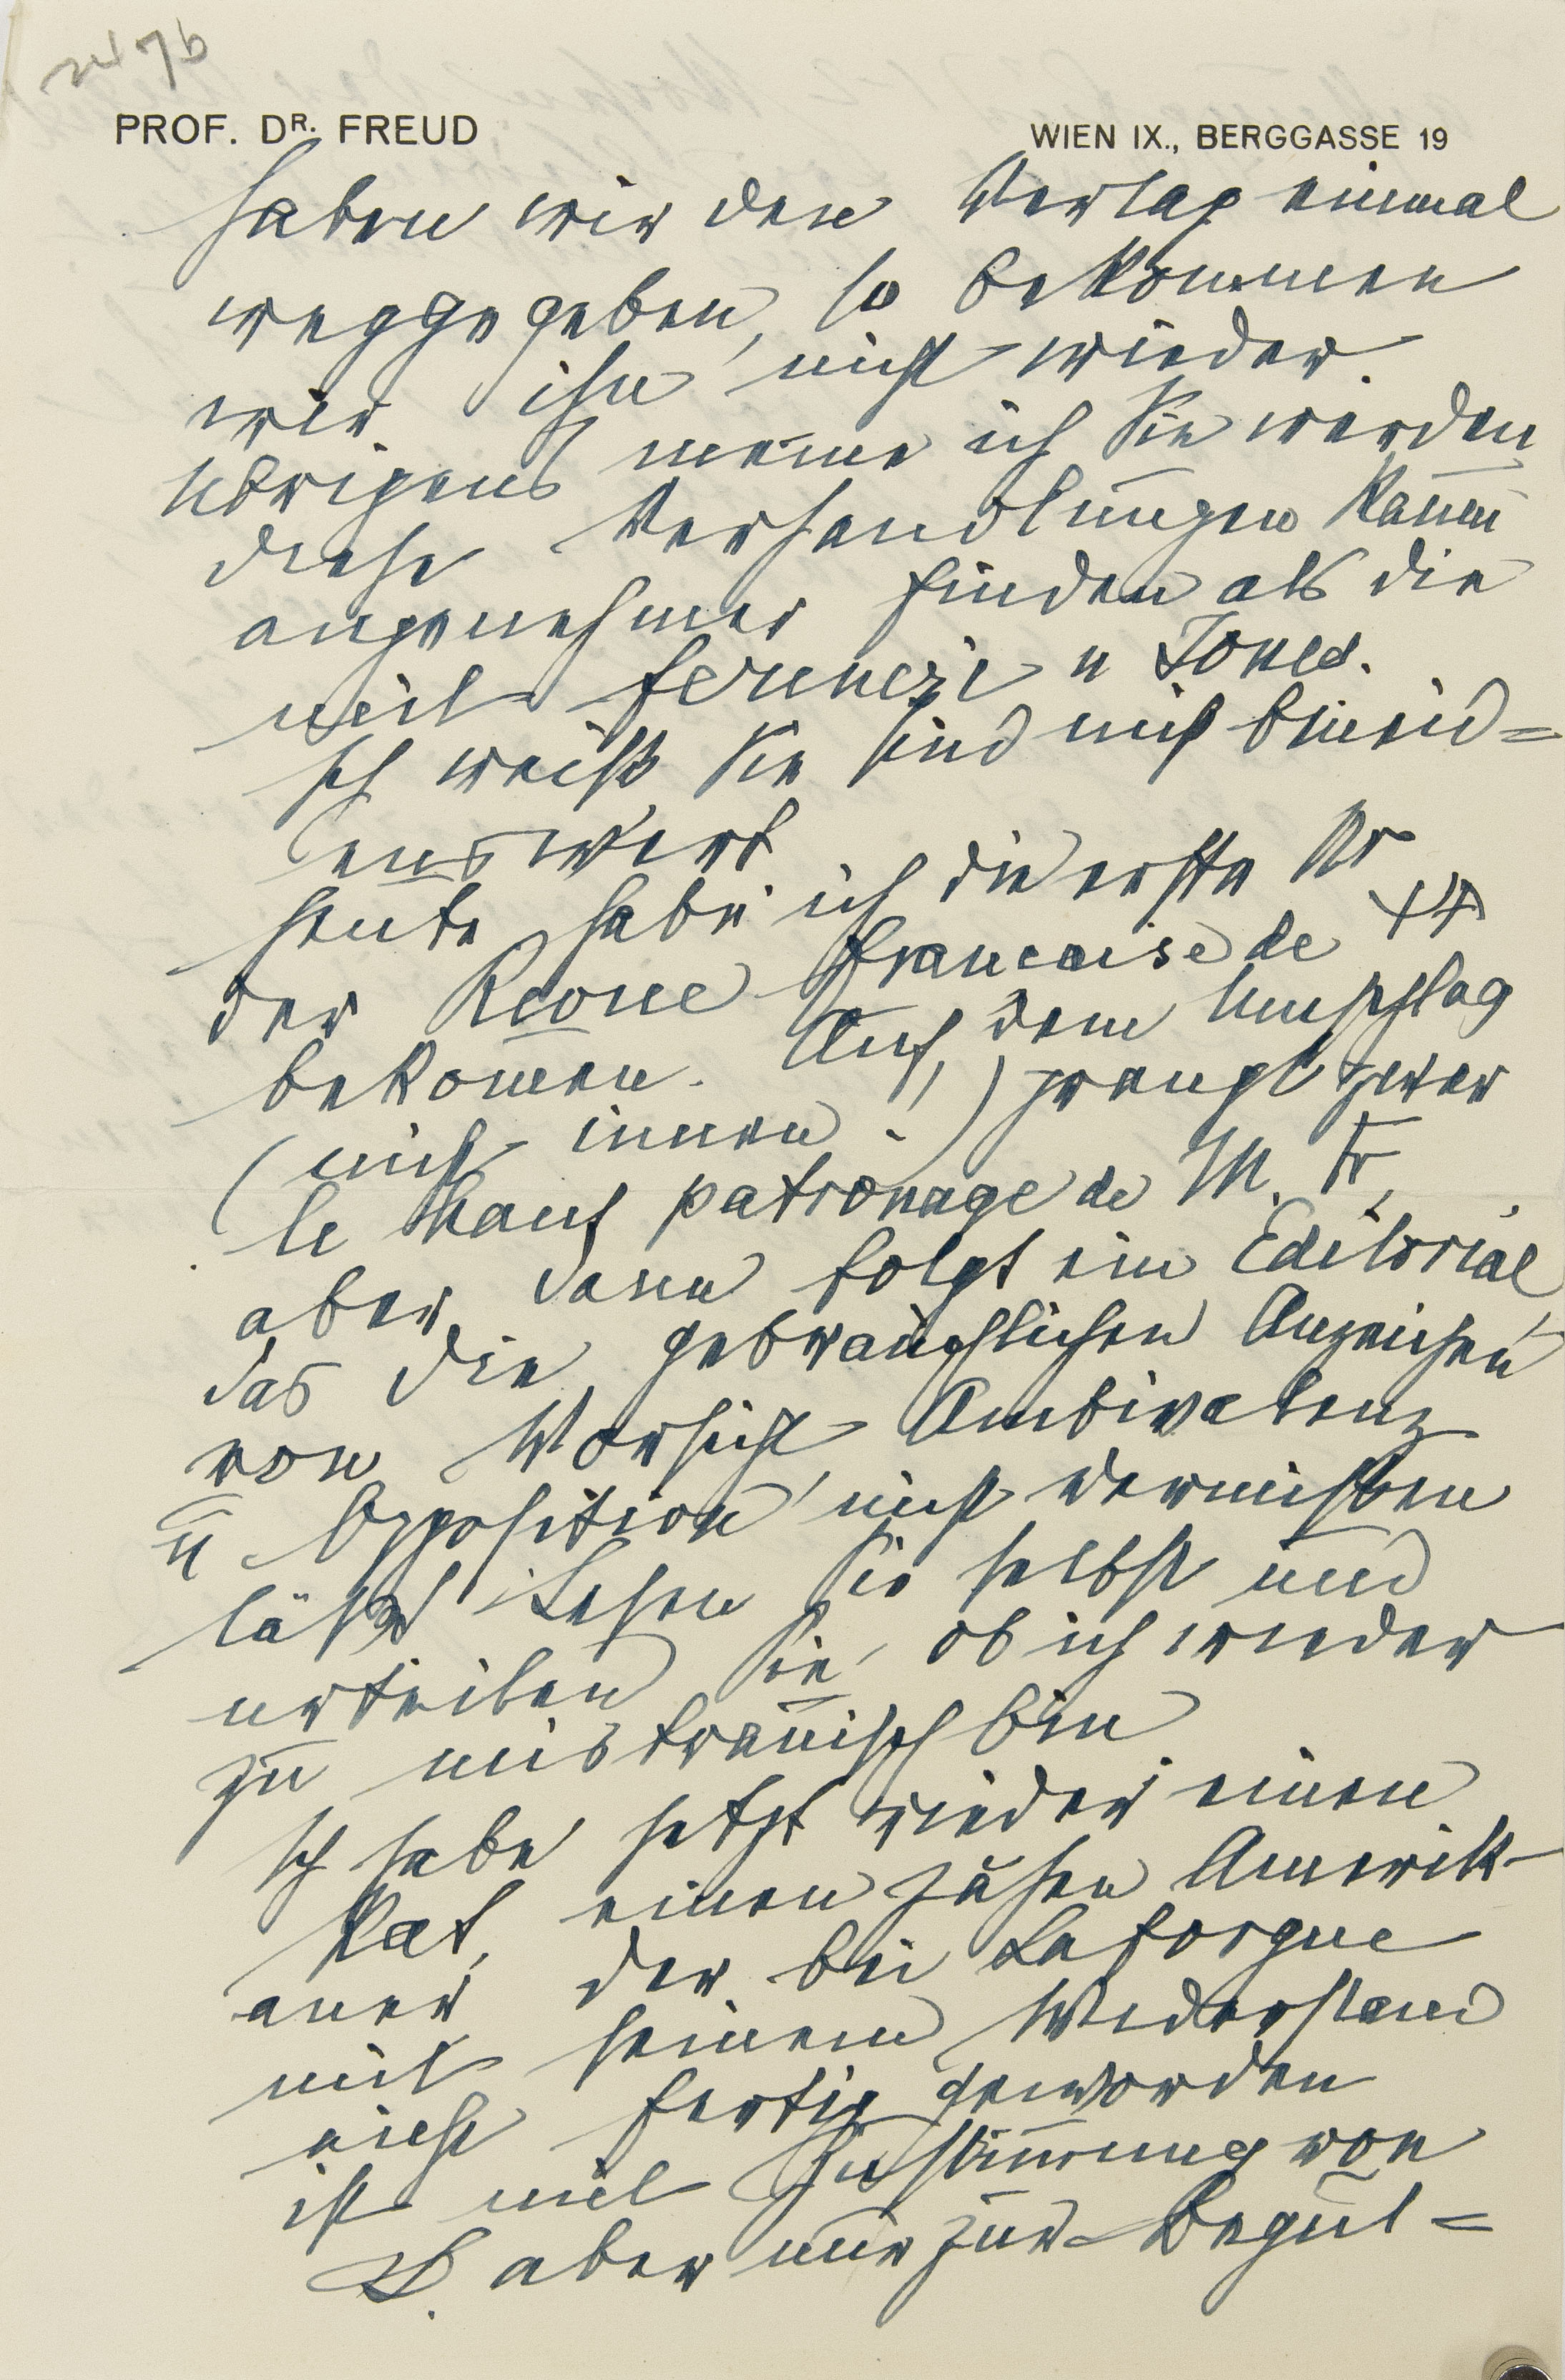 PROF. DR. FREUD
WIEN IX., BERGGASSE 19
haben wir den Verlag einmal
weggegeben, so bekommen
wir ihn nicht wieder.
Übrigens meine ich Sie werden
diese Verhandlungen kaum
angenehmer finden als die
mit Ferenczi u Jones.
Ich weiß Sie sind nicht beneid=
enswert
Heute habe ich die erste Nr
der Revue française de ΨA
bekom̄en. Auf dem Umschlag
(nicht innen!) prangt zwar
le haut patronage de M. Fr,
aber dann folgt ein Editorial,
das die gebräuchlichen Anzeichen
von Vorsicht, Ambivalenz
u Opposition nicht vermissen
läßt. Lesen Sie selbst und
urteilen Sie, ob ich wieder
zu mistrauisch bin
Ich habe jetzt wieder einen
Pat, einen zähen Amerik-
aner der bei Laforgue
mit seinem Widerstand
nicht fertig geworden
ist mit Zustim̄ung von
L. aber nur zur Begut=